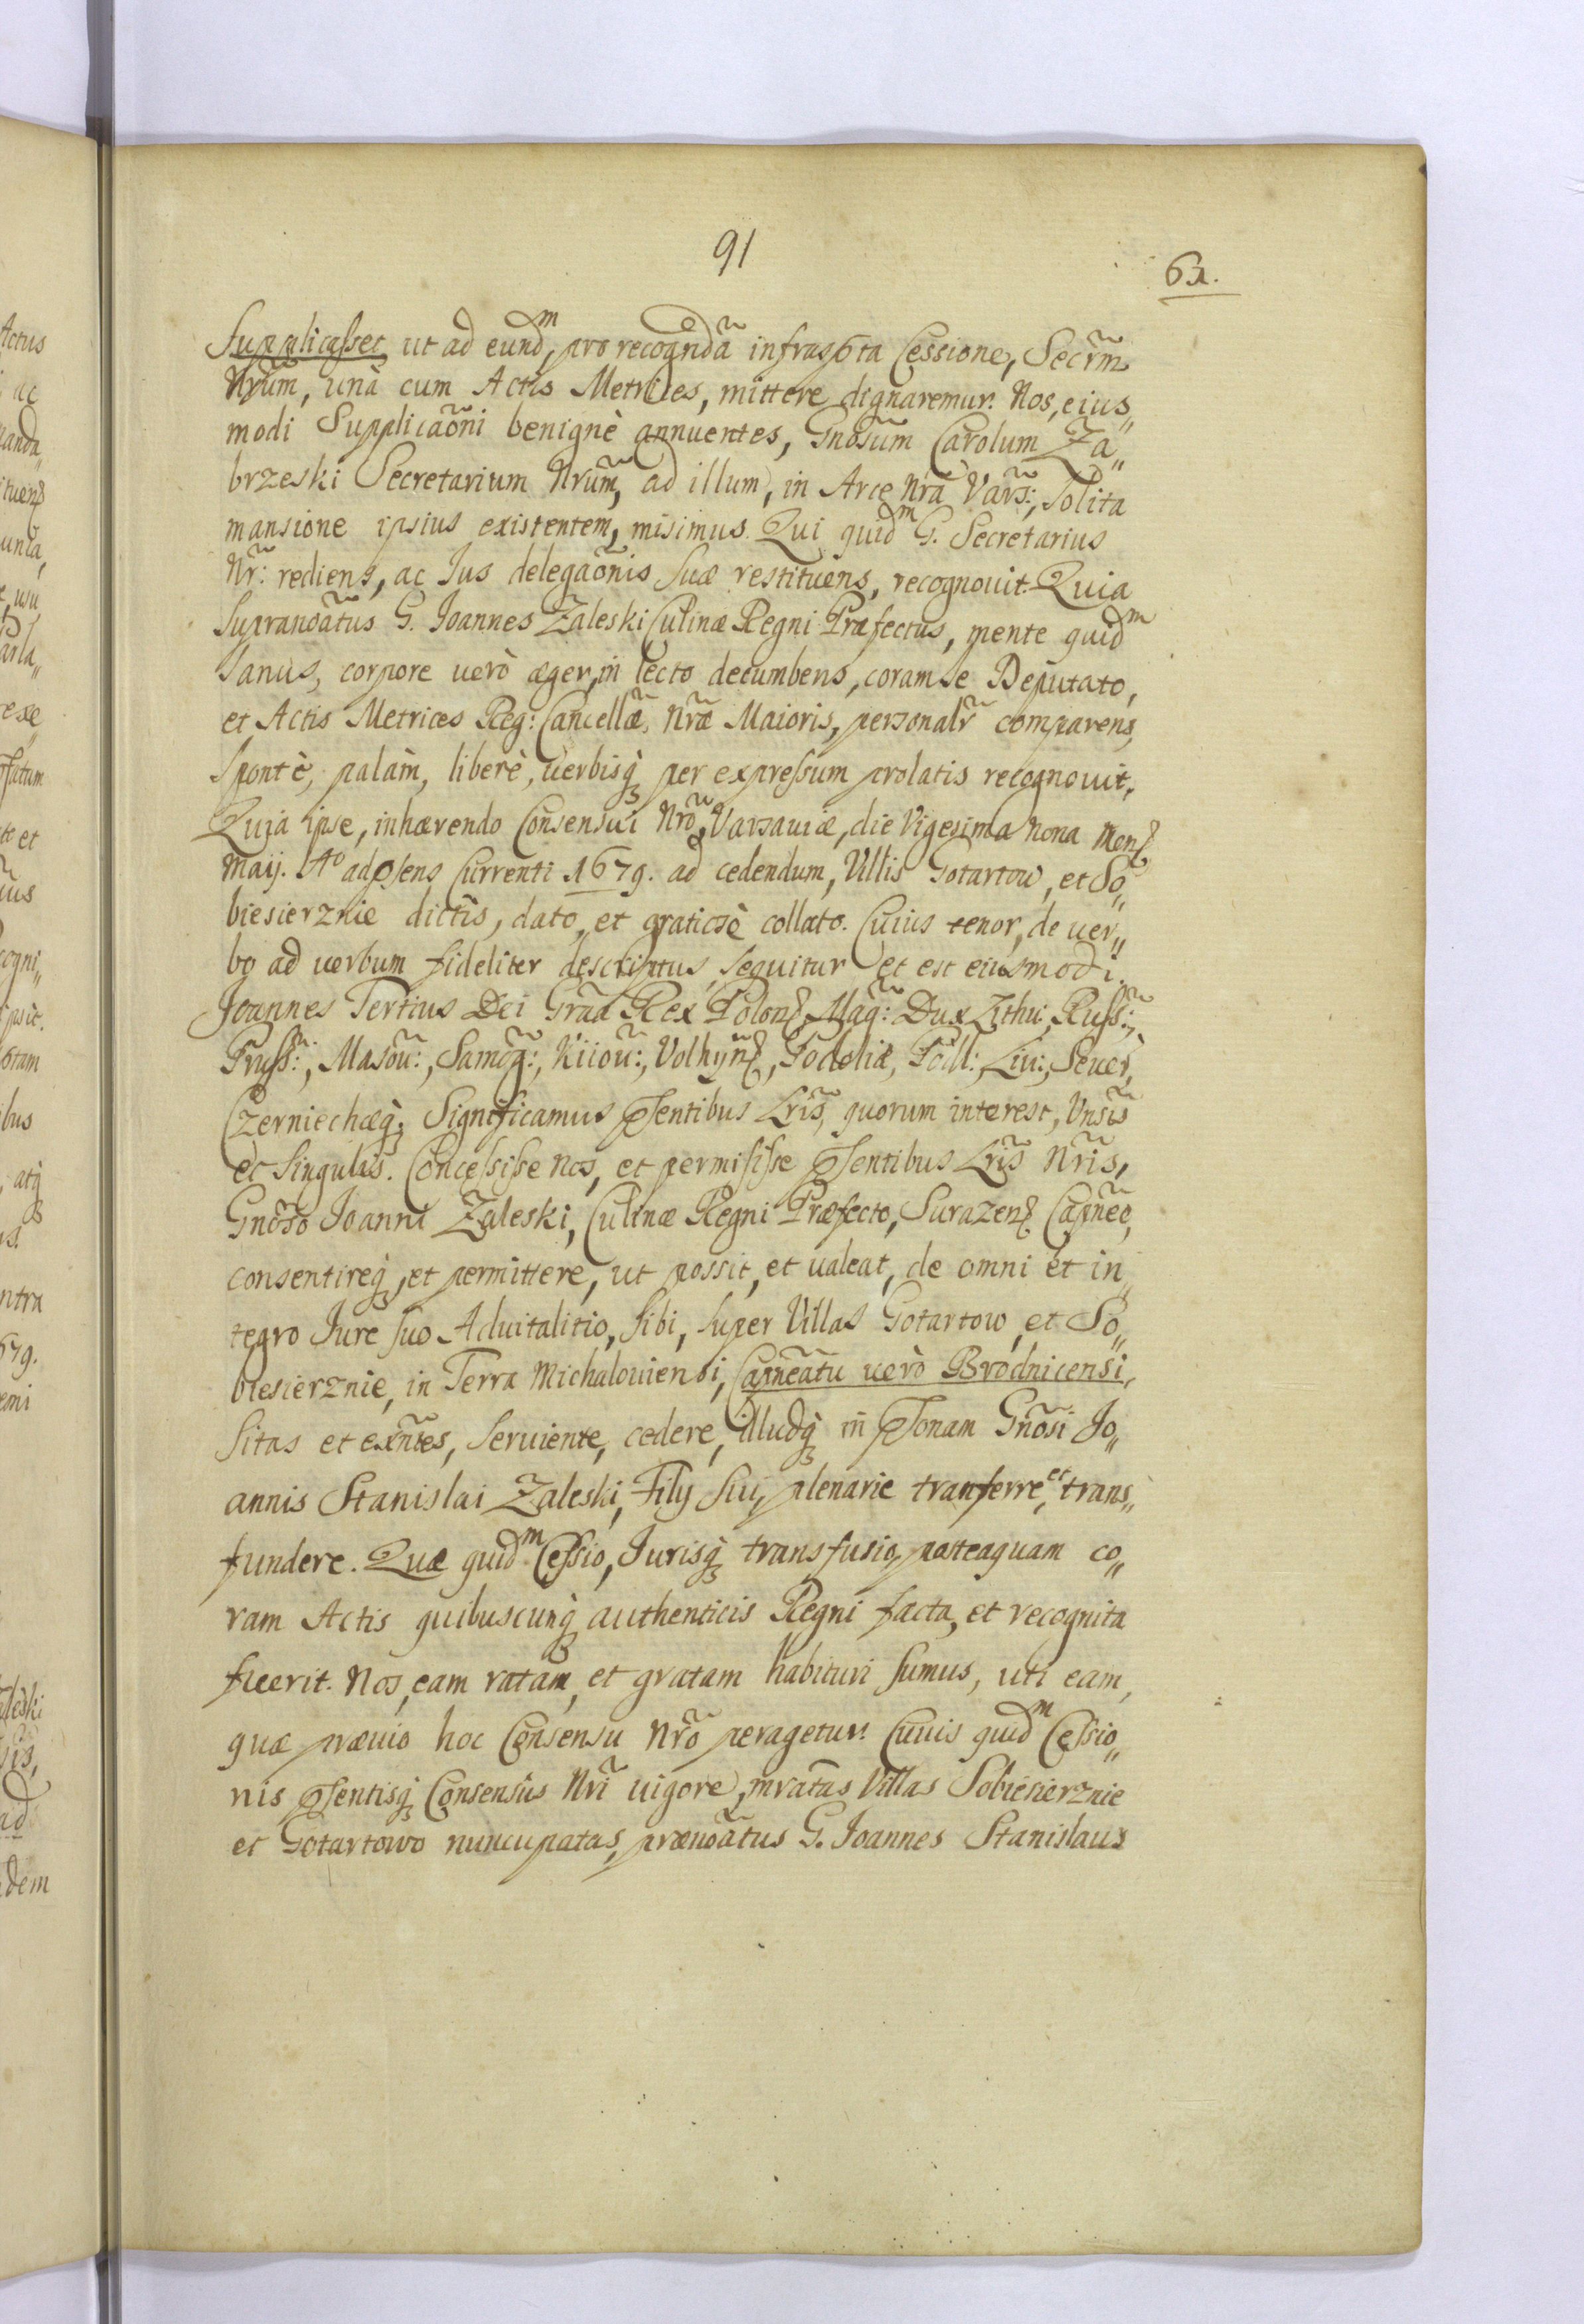 91
61.
Supplicasset ut ad eundᵐ, pro recogndã infraspta Cessione, Secr̃m
Nr̃um, unà cum Actis Metrices, mittere dignaremur. Nos, eius„
modi Supplicaõni benignè annuentes, Gnõsum Carolum Za„
brzeski Secretarium Nr̃um, ad illum, in Arce Nr̃a Vars̃:, solita
mansione ipsius existentem, misimus. Qui quidᵐ G. Secretarius
Nr̃: rediens, ac Ius delegaõnis suæ restituens, recognouit. Quia
Supranoãtus G. Joannes Zaleski Culinæ Regni Præfectus, mente quidᵐ
sanus, corpore uerò æger, in lecto decumbens, coram se Deputato,
et Actis Metrices Reg: Cancellæ̃, Nr̃æ Maioris, personalr̃ comparens,
Spontè, palàm, liberè, uerbisq̃ per expressum prolatis recognouit,
Quia ipse, inhærendo Consensui Nr̃o, Varsauiæ, die Vigesima Nona Mens
Maij. Aº adpsens Currenti 1679. ad cedendum, Villis Gotartow, et So„
biesierznie dictis, dato, et gratiosè collato. Cuius tenor, de uer„
bo ad uerbum fideliter descriptus, sequitur et est eiusmodi.
Joannes Tertius Dei Gr̃a Rex Polon, Mag̃: Dux Lithu:, Russ̃:,
Pruss̃:, Masoũ:, Samog̃:, Kiioũ:, Volhyñ, Podoliæ, Podl:, Liu:, Seuer,
Czerniechæq̃. Significamus Psentibus Lr̃is, quorum interest, Vnsis̃
et Singulis. Concessisse Nos, et permisisse Psentibus Lr̃is Nr̃is,
Gnõso Joanni Zaleski, Culinæ Regni Præfecto, Surazen Capñeo,
consentireq̃, et permittere, ut possit, et ualeat, de omni et in„
tegro Jure suo Aduitalitio, sibi, super Villas Gotartow, et So„
biesierznie, in Terra Michalouiensi, Capñeatu uerò Brodnicensi,
Sitas et exñtes, seruiente, cedere, illudq̃ in Psonam Gnõsi Jo„
annis Stanislai Zaleski, Filij sui, plenarie tranferre, et trans„
fundere. Quæ quidᵐ Cessio, Jurisq̃ transfusio, posteaquam co„
ram Actis quibuscunq̃ authenticis Regni facta, et recognita
fuerit. Nos, eam ratam, et gratam habituri sumus, uti eam,
quæ præuio hoc Consensu Nr̃o peragetur. Cuuis quidᵐ Cessio„
nis, Psentisq̃ Consensus Nr̃i uigore, mvatas Villas Sobiesierznie
et Gotartowo nuncupatas, prænoãtus G. Joannes Stanislaus